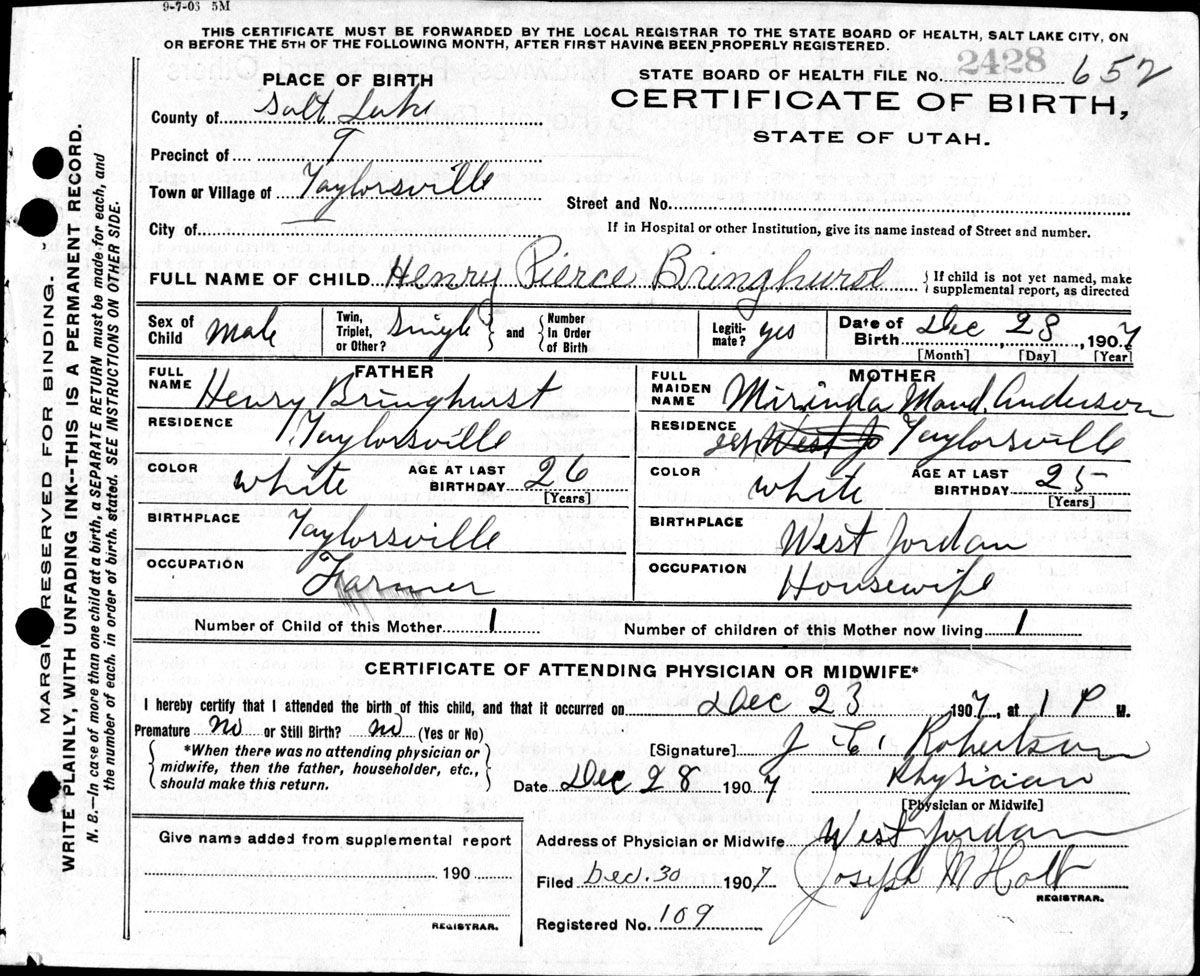 9-7-03 5M
THIS CERTIFICATE MUST BE FORWARDED BY THE LOCAL REGISTRAR TO THE STATE BOARD OF HEALTH, SALT LAKE CITY, ON
OR BEFORE THE 5TH OF THE FOLLOWING MONTH, AFTER FIRST HAVING BEEN PROPERLY REGISTERED.
STATE BOARD OF HEALTH FILE No. 2428 652
CERTIFICATE OF BIRTH,
STATE OF UTAH.
PLACE OF BIRTH
County of Salt Lake
Precinct of
Town or Village of Taylorsville
City of
Street and No.
If in Hospital or other Institution, give its name instead of Street and number.
FULL NAME OF CHILD Henry Pierce Bringhurst { If child is not yet named, make
supplemental report, as directed
Sex of Child Male
Twin, Triplet, or Other? Single } and { Number In Order of Birth
Legitimate? yes
Date of Birth Dec 28, 1907
[Month] [Day] [Year]
FATHER
FULL NAME Henry Bringhurst
RESIDENCE Taylorsville
COLOR white AGE AT LAST BIRTHDAY 26 [Years]
BIRTHPLACE Taylorsville
OCCUPATION Farmer
MOTHER
FULL MAIDEN NAME Mirinda Maud. Anderson
RESIDENCE Taylorsville
COLOR white AGE AT LAST BIRTHDAY 25 [Years]
BIRTHPLACE West Jordan
OCCUPATION Housewife
Number of Child of this Mother 1 Number of children of this Mother now living 1
CERTIFICATE OF ATTENDING PHYSICIAN OR MIDWIFE*
I hereby certify that I attended the birth of this child, and that it occurred on Dec 23 1907, at 1 P M.
Premature No or Still Birth? No (Yes or No)
{ *When there was no attending physician or
midwife, then the father, householder, etc.,
should make this return. }
[Signature] J. C. Robertson
Date Dec 28 1907 Physician
[Physician or Midwife]
Address of Physician or Midwife West Jordan
Filed Dec. 30 1907 Joseph M Holt
REGISTRAR.
Registered No. 109
Give name added from supplemental report
190
REGISTRAR.
MARGIN RESERVED FOR BINDING.
WRITE PLAINLY, WITH UNFADING INK-THIS IS A PERMANENT RECORD.
N. B.—In case of more than one child at a birth, a SEPARATE RETURN must be made for each, and
the number of each, in order of birth, stated. SEE INSTRUCTIONS ON OTHER SIDE.